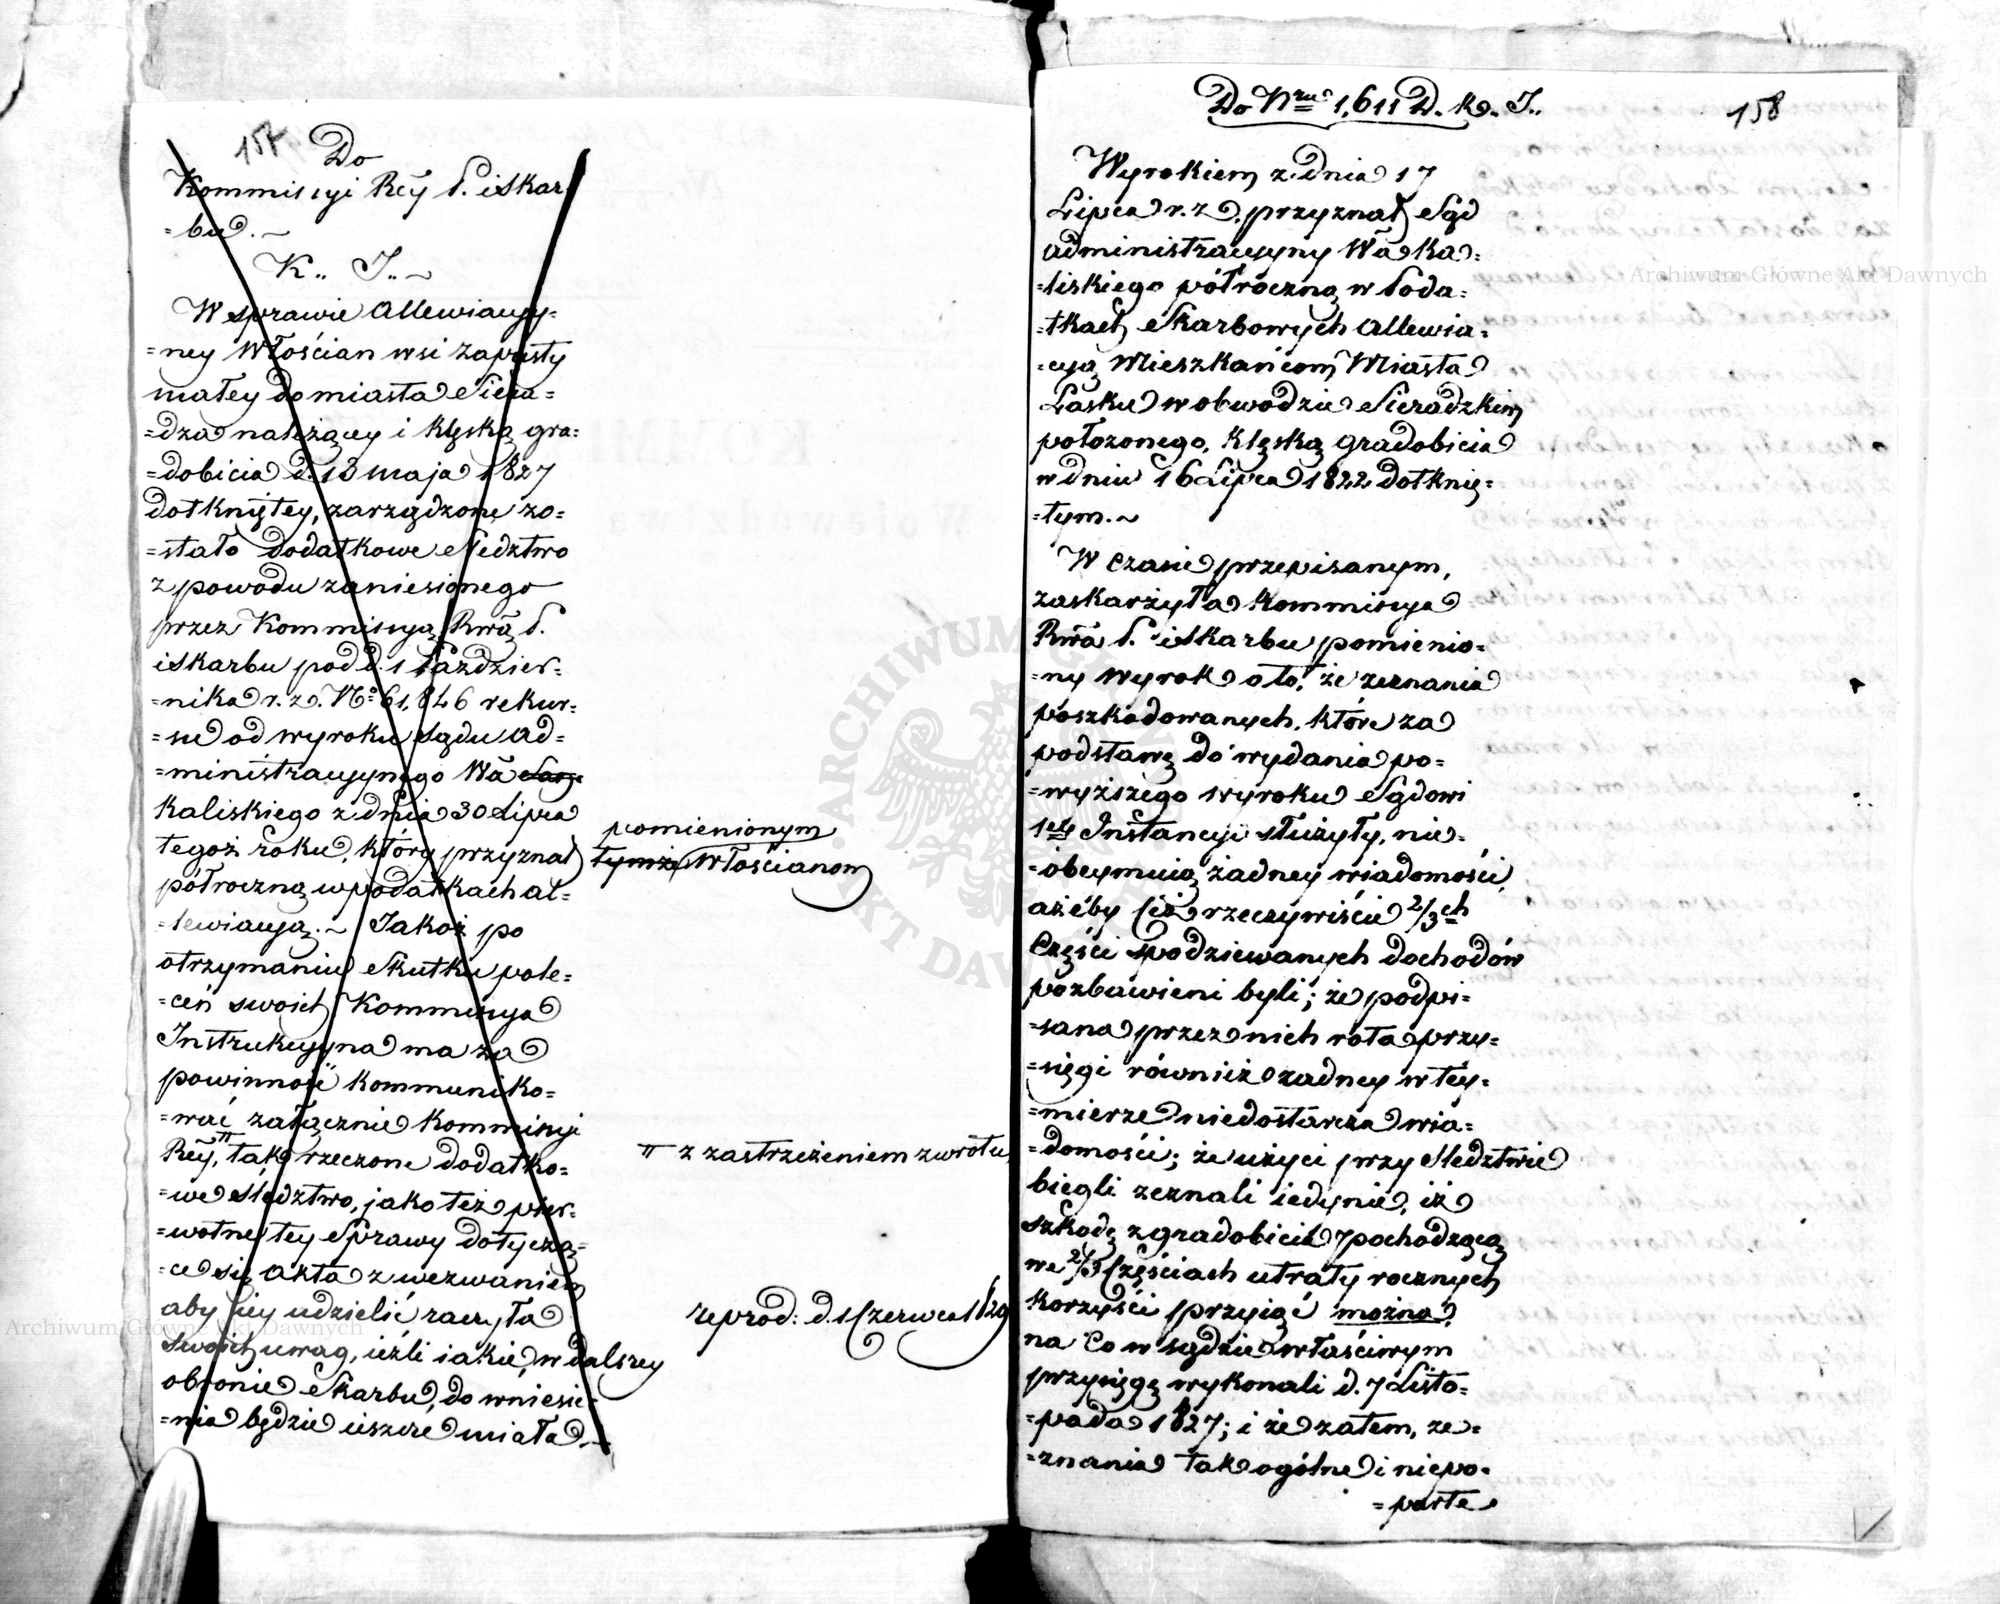 157
Do
Kommissyi Rėy P. i Skar
=bu.~
K.. J..~
W sprawie Allewiacyy=
=ney Włościan wsi Zapusty
małey do miasta Siera=
=dza należącey i klęską gra=
=dobicia d. 13 maja 1827
dotkniętey, zarządzone zo=
=stało dodatkowe Sledztwo
z powodu zaniesionego
przez Kommissyą Rwą P.
i Skarbu pod d. 1 Paździer=
=nika r. z. No 61,846 rekur=
=su od wyroku Sądu Ad=
=ministracyynego Wa
Kaliskiego z dnia 30 Lipca
tegoż roku, który przyznał
pomienionym
tymże Włościanom
półroczną w podatkach al=
=lewiacyą.~ Jakoż po
otrzymaniu Skutku pole=
=ceń swoich Kommissya
Instrukcyyna ma za
powinność kommuniko=
=wać załącznie Kommissyi
Rėy, π tak rzeczone dodatko=
π z zastrzeżeniem zwrotu,
=we Sledztwo, jako też pier=
=wotne tey Sprawy dotyczą=
=ce się Akta z wezwaniem
aby iey udzielić raczyła
Swoich uwag, ieźli iakie w dalszey
obronie Skarbu, do wniesie=
=nia będzie ieszcze miała.~
reprod: d. 1 Czerwca 1829
Do Nru 1,611 D. K. J..
158
Wyrokiem z dnia 17
Lipca r. z. przyznał Sąd
Administracyyny Wa Ka=
=liskiego półroczną w Poda=
=tkach Skarbowych Allewia=
=cyą Mieszkańcom Miasta
Łasku w obwodzie Sieradzkim
położonego, klęską gradobicia
w dniu 16 Lipca 1822 dotknię=
=tym.~
W czasie przepisanym,
zaskarżyła Kommissya
Rwa P. i Skarbu pomienio=
=ny wyrok o to, że zeznania
poszkodowanych, które za
podstawę do wydania po=
=wyższego wyroku Sądowi
1ey Instancyi służyły, nie=
=obeymuią żadney wiadomości,
ażeby Ciż rzeczywiście 2/3ch
Części spodziewanych dochodów
pozbawieni byli; że podpi=
=sana przez nich rota przy=
=sięgi również żadney w tey=
=mierze niedostarcza wia=
=domości; że użyci przy Sledztwie
biegli zeznali iedynie, iż
szkodę z gradobicia pochodzącą
we 2/3 Częściach utraty rocznych
korzyści przyiąć można,
na co w sądzie właściwym
przysięgę wykonali d. 7 Listo=
=pada 1827; i że zatem, ze=
=znania tak ogólne i niepo=
=parte
ARCHIWUM GŁÓWNE AKT DAWNYCH
Archiwum Główne Akt Dawnych
Archiwum Główne Akt Dawnych